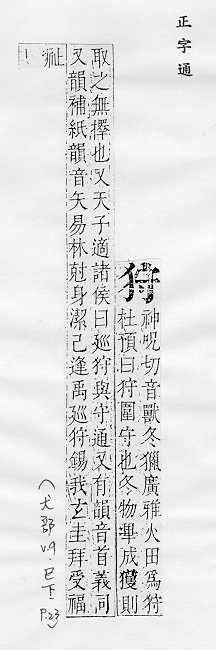 正字通
狩
神呪切音獸冬獵廣雅火田爲狩
杜預曰狩圍守也冬物畢成獲則
取之無擇也又天子適諸侯曰廵狩與守通又有韻音首義同
又韻補紙韻音矢易林尅身潔己逢禹廵狩錫我玄圭拜受福
祉
(犬部 v.9 巳下 P.23)